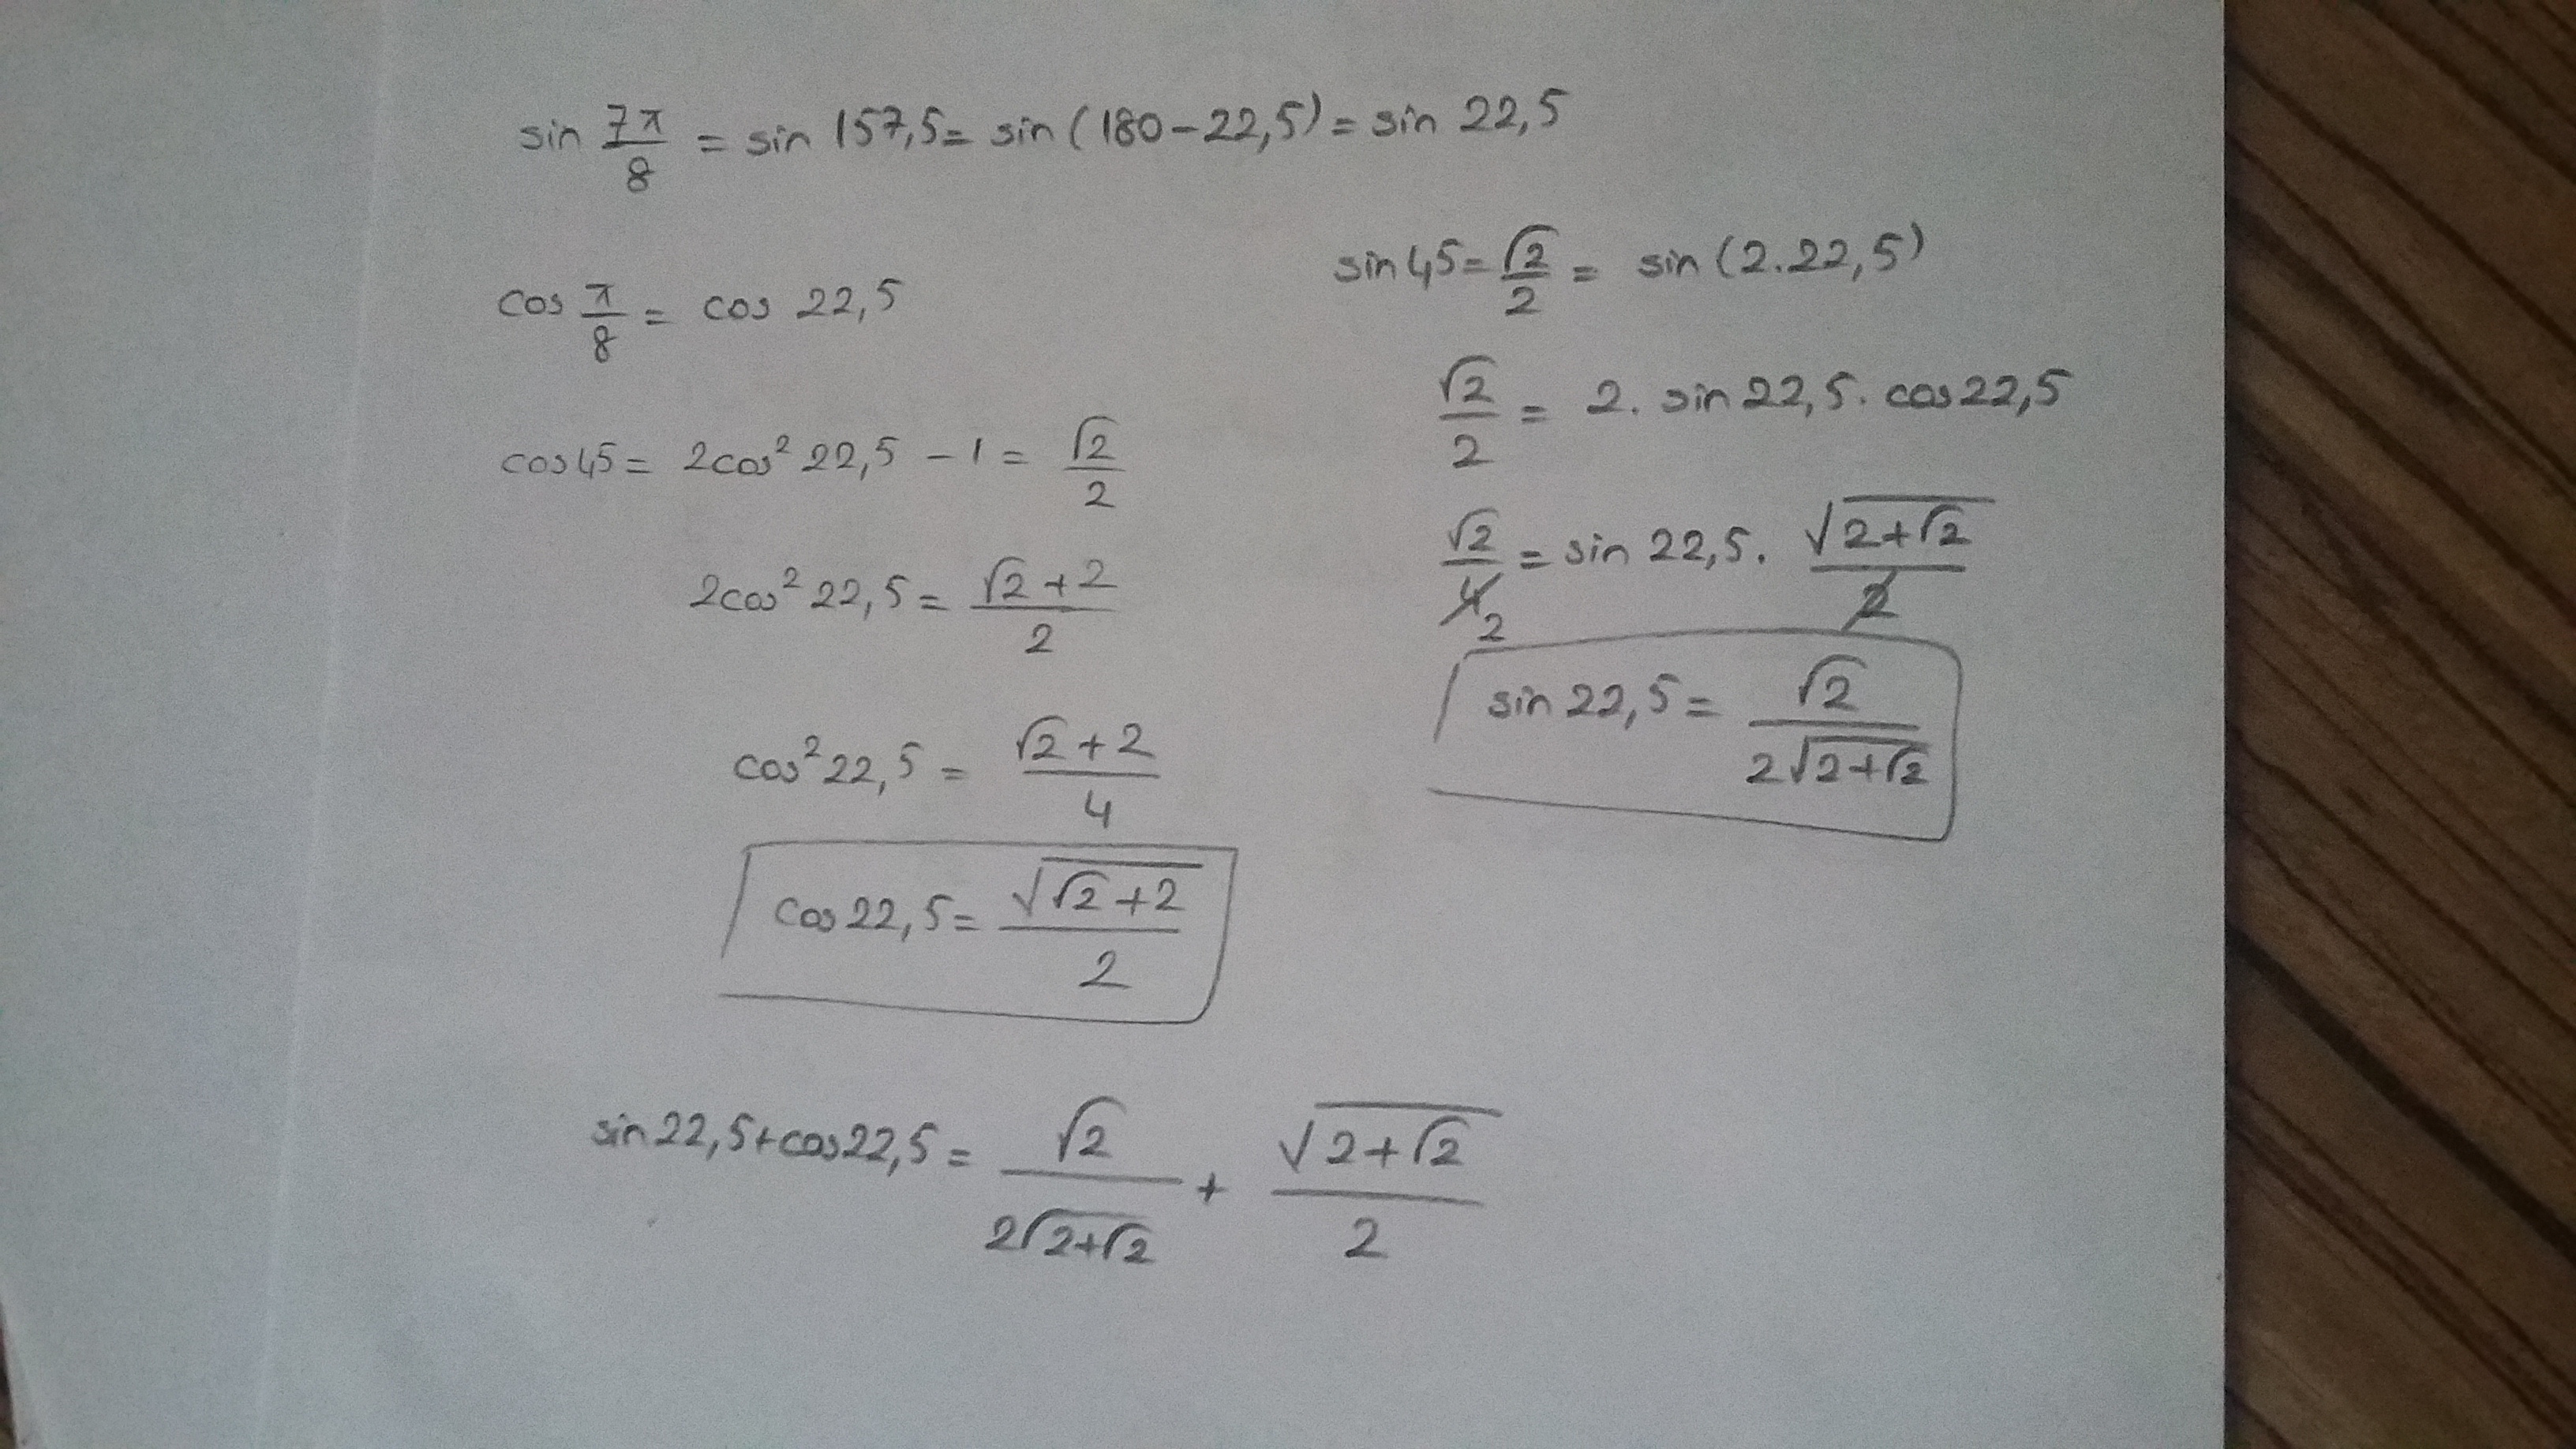 sin 7π/8 = sin 157,5 = sin (180 - 22,5) = sin 22,5
cos π/8 = cos 22,5
cos 45 = 2cos² 22,5 - 1 = √2/2
2cos² 22,5 = (√2 + 2)/2
cos² 22,5 = (√2 + 2)/4
cos 22,5 = √(√2 + 2)/2
sin 45 = √2/2 = sin (2 . 22,5)
√2/2 = 2 . sin 22,5 . cos 22,5
√2/4 2 = sin 22,5 . √(2+√2)/2
sin 22,5 = √2/(2√(2+√2))
sin 22,5 + cos 22,5 = √2/(2√(2+√2)) + √(2+√2)/2